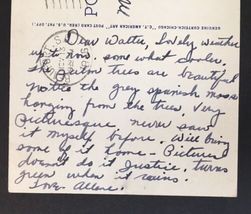 GENUINE CURTEICH-CHICAGO "C.T. AMERICAN ART" POST CARD (REG. U.S. PAT. OFF.)
PO
Dear Walter, Lovely weather
up to now. some what cooler,
the palm trees are beautiful
notice the grey spanish moss
hanging from the trees. Very
Picturesque never saw
it myself before. Will bring
some of it home. Pictures
doesn't do it Justice, turns
green when it rains.
Love. Allene.